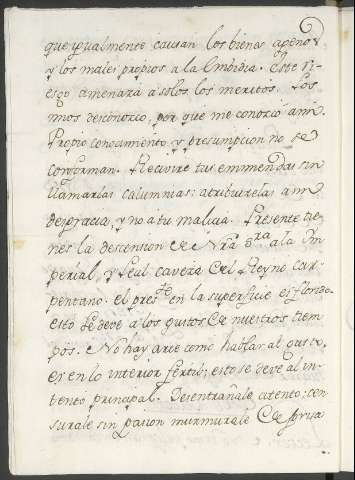 que ygualmente causan los bienes agenos
y los males propios a la Embidia. Este ri-
esgo amenaza a solos los meritos. Los
mios desconozco, por que me conozco a mi.
Propio conocimiento, y presumpcion no se
conforman. Recivire tus emmendas sin
llamarlas calumnias: atribuirelas a mi
desgracia, y no a tu malicia. Presente tie-
nes la descencion de Nrã Srã a la Ym
perial, y Real cavesa del Reyno car-
pentano. el preste en la superficie es florido.
esto se deve a los gustos de nuestros tiem
pos. No hay arte como hablar al gusto.
es en lo interior fertil; esto se deve al in-
tento principal. Desentrañale atento; cen
surale sin pasion murmurale